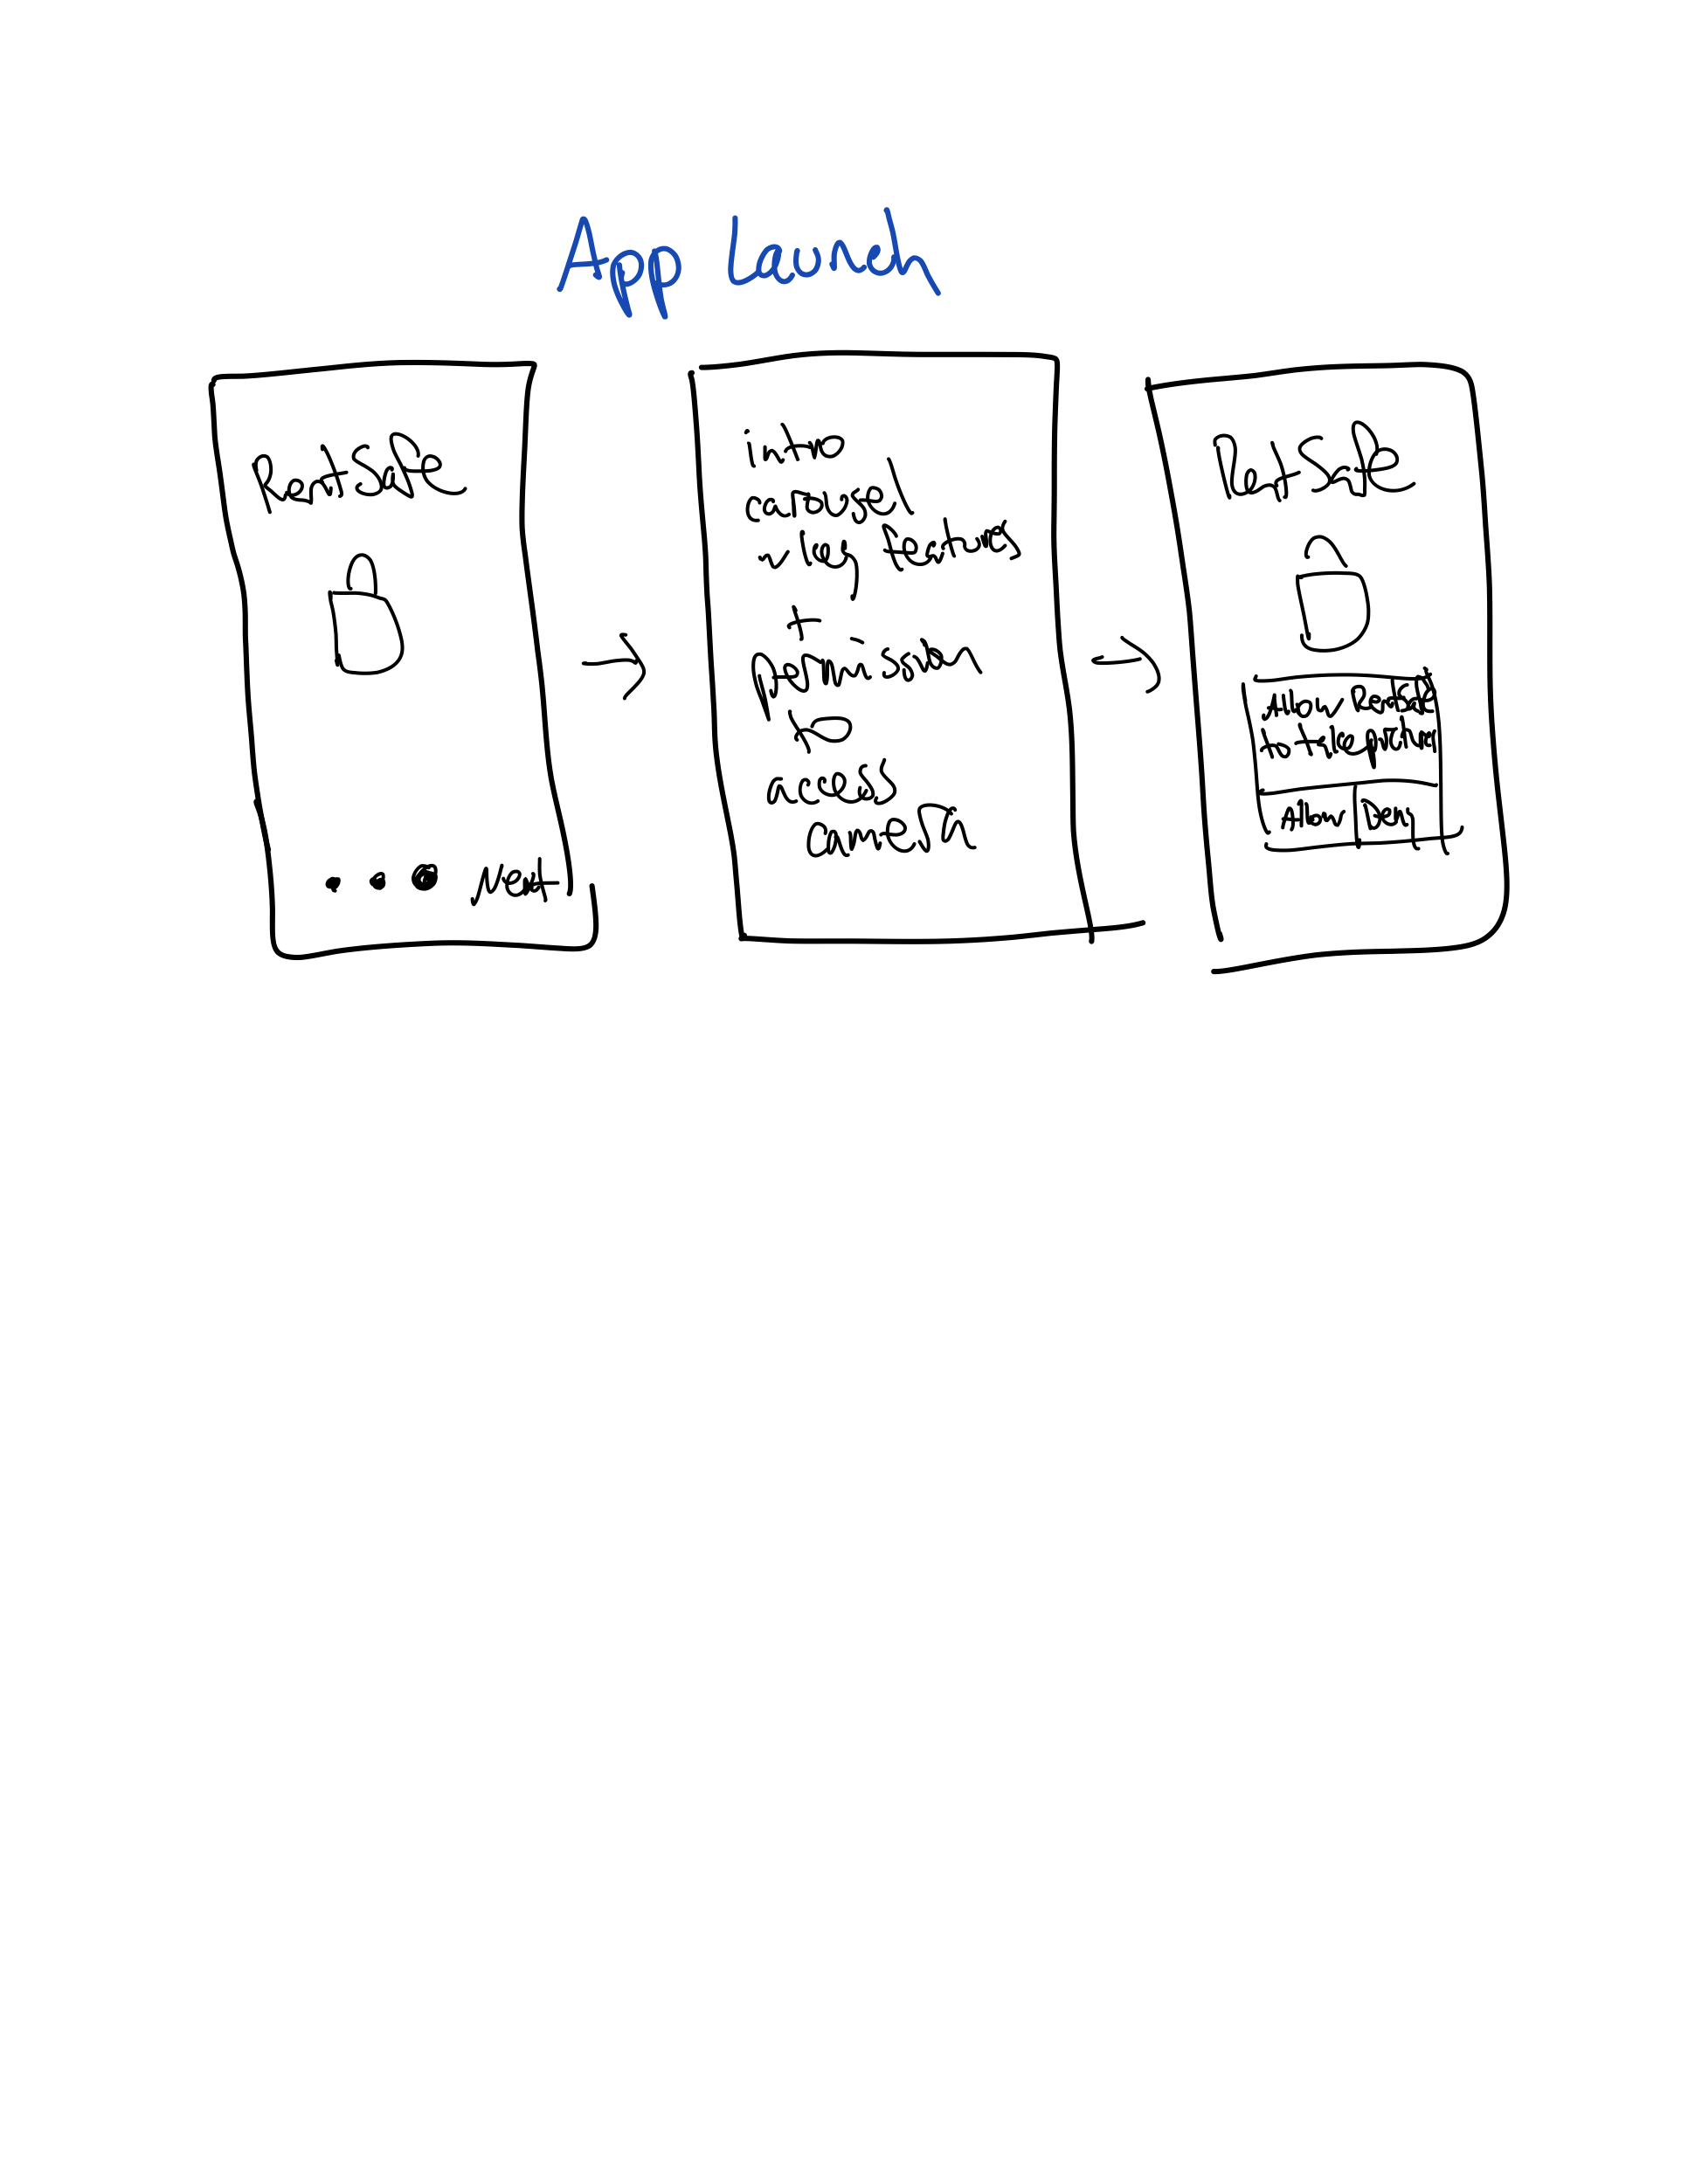 App Launch
RentSafe
Next
intro
carousel
w/key features
+
permission
to
access
camera
RentSafe
Allow RentSafe
to take pictures
Allow Deny